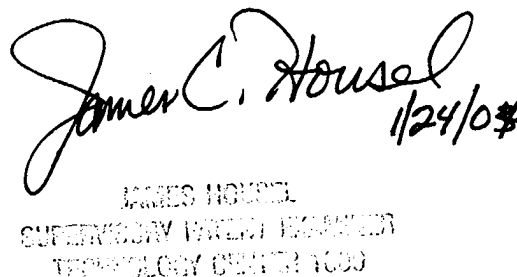 James C. Housel
1/24/0
JAMES HOUSEL
SUPERVISORY PATENT EXAMINER
TECHNOLOGY CENTER 1600